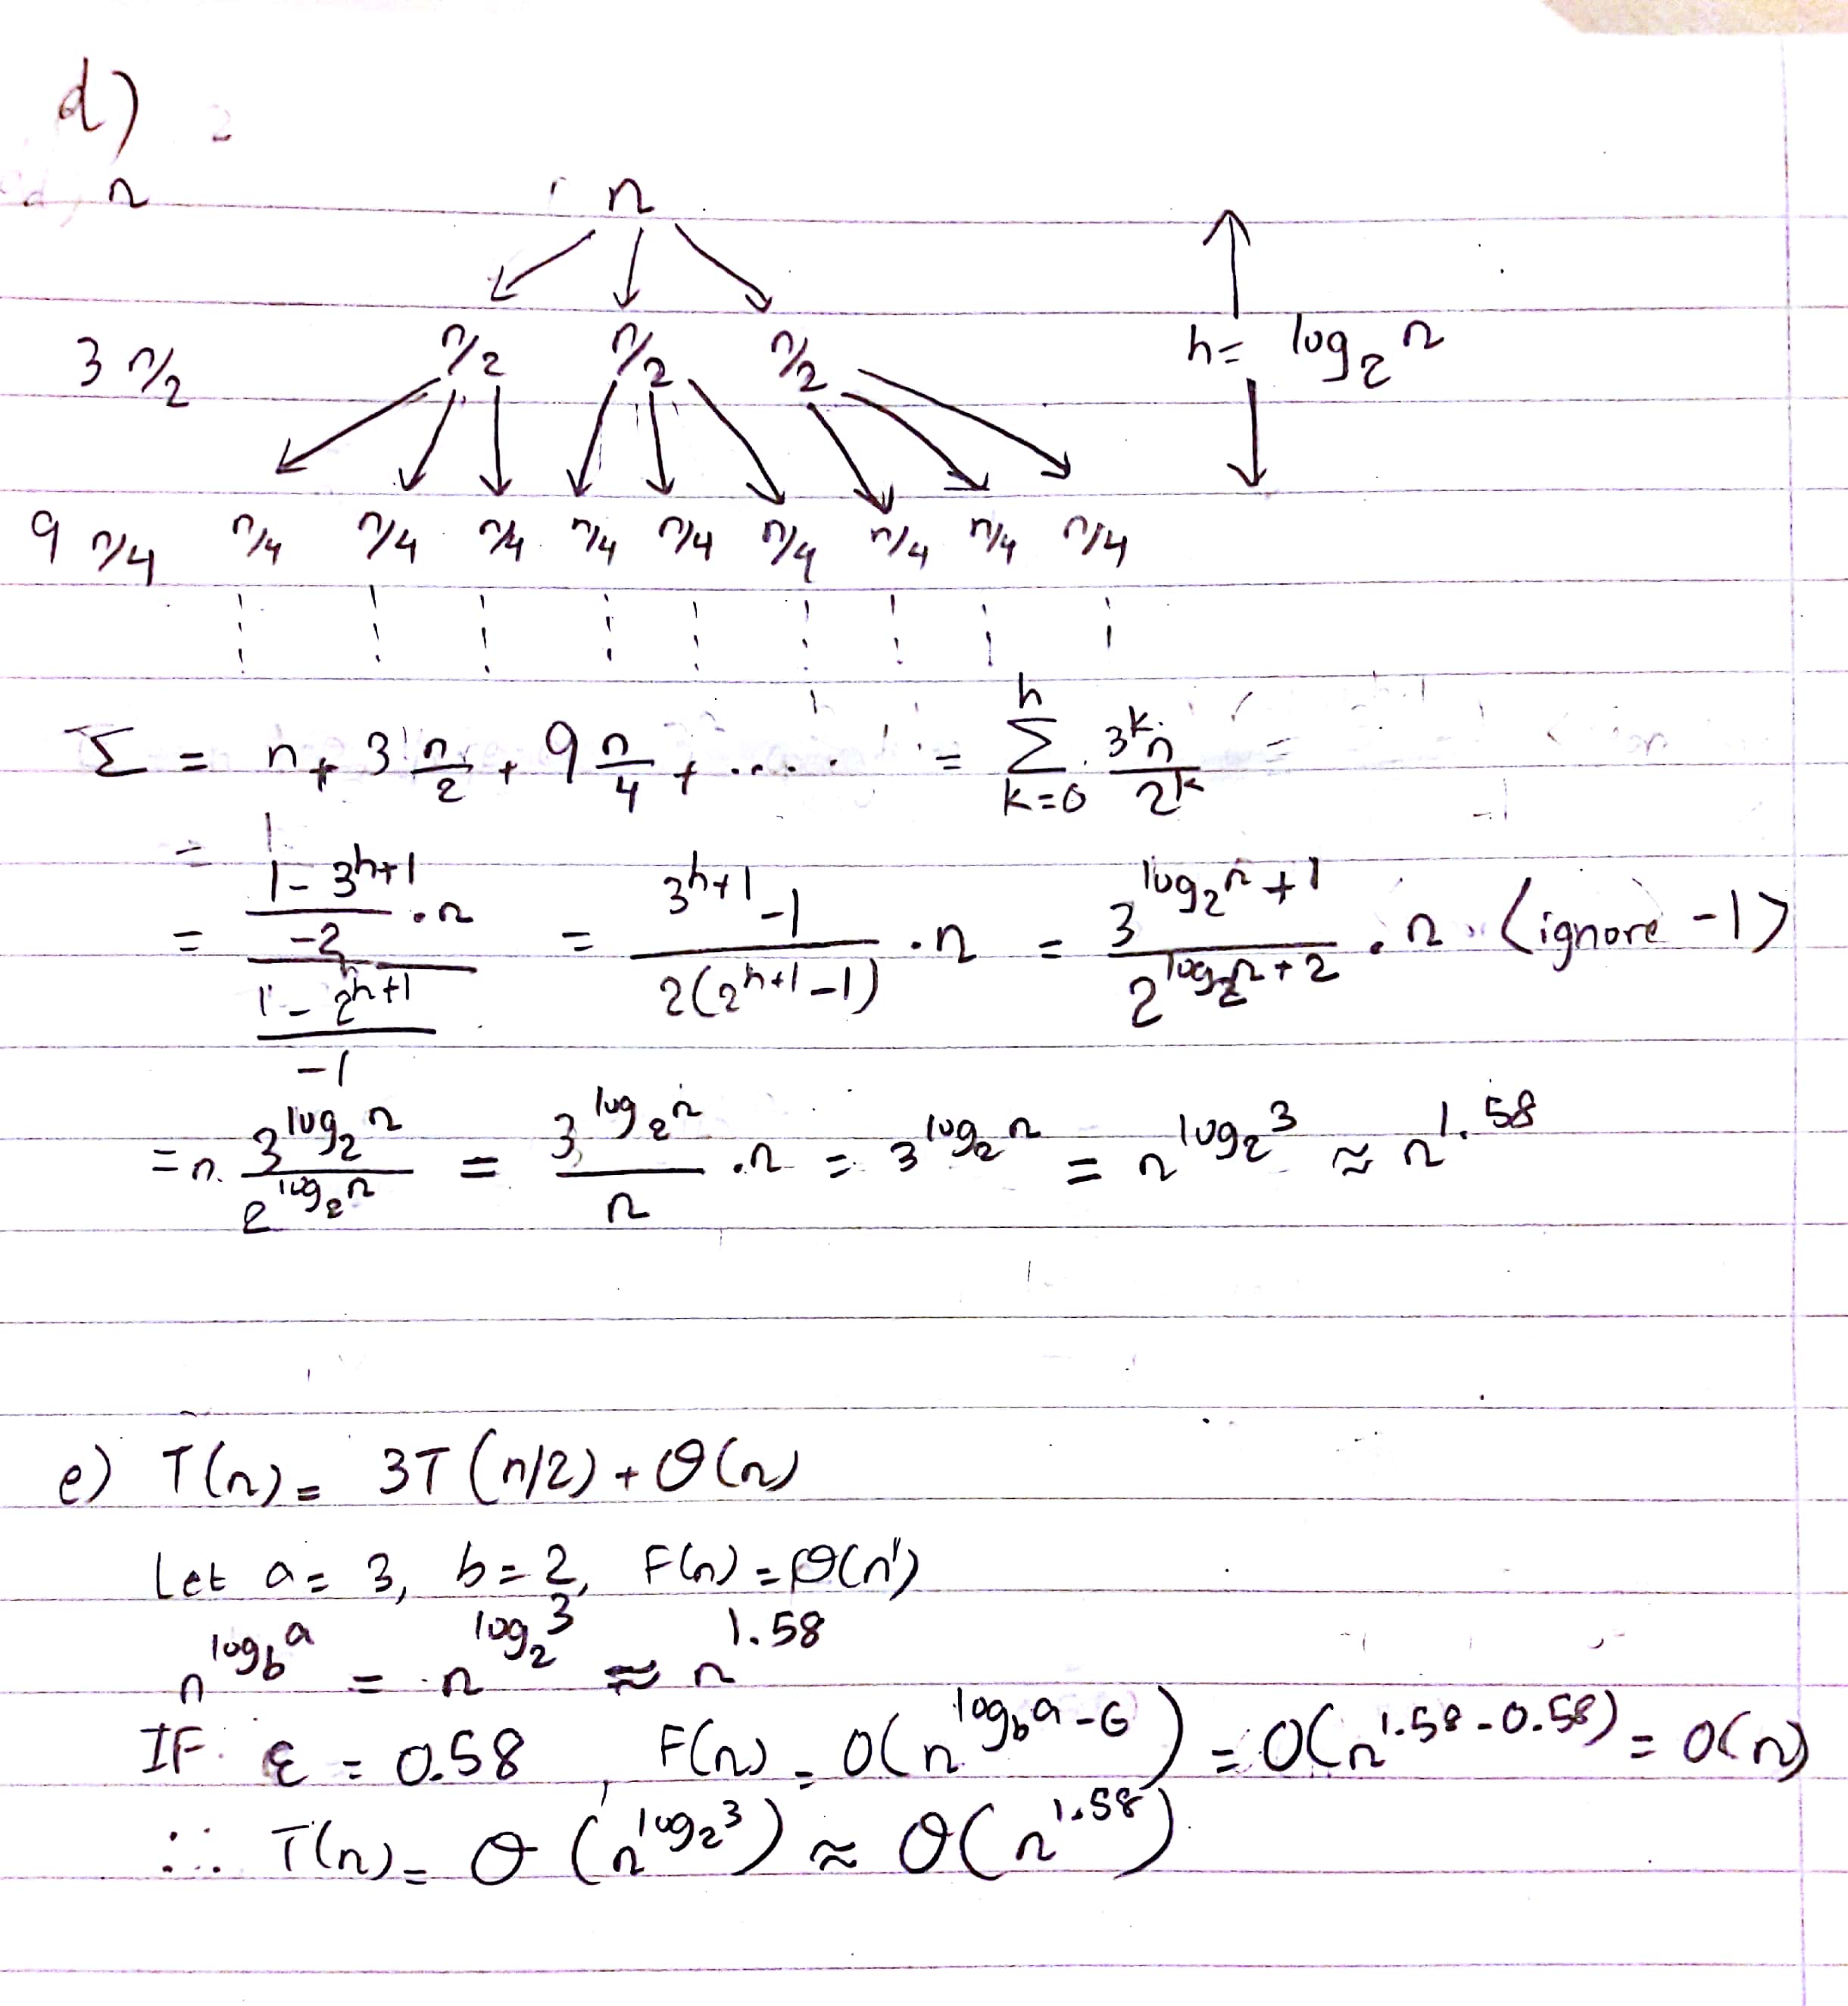 d)
n n
3 n/2 n/2 n/2 n/2 h = log₂ n
9 n/4 n/4 n/4 n/4 n/4 n/4 n/4 n/4 n/4 n/4
Σ = n + 3 n/2 + 9 n/4 + ..... = Σ_{k=0}^{h} 3^k n / 2^k =
= ((1 - 3^{h+1})/(-2) · n) / ((1 - 2^{h+1})/(-1)) = (3^{h+1} - 1)/(2(2^{h+1} - 1)) · n = 3^{log₂ n + 1} / 2^{log₂ n + 2} · n <ignore -1>
= n · 3^{log₂ n} / 2^{log₂ n} = 3^{log₂ n} / n · n = 3^{log₂ n} = n^{log₂ 3} ≈ n^{1.58}
e) T(n) = 3T(n/2) + Θ(n)
Let a = 3, b = 2, F(n) = Θ(n¹)
n^{log_b a} = n^{log₂ 3} ≈ n^{1.58}
IF ε = 0.58, F(n) = O(n^{log_b a - ε}) = O(n^{1.58 - 0.58}) = O(n)
∴ T(n) = Θ(n^{log₂ 3}) ≈ Θ(n^{1.58})